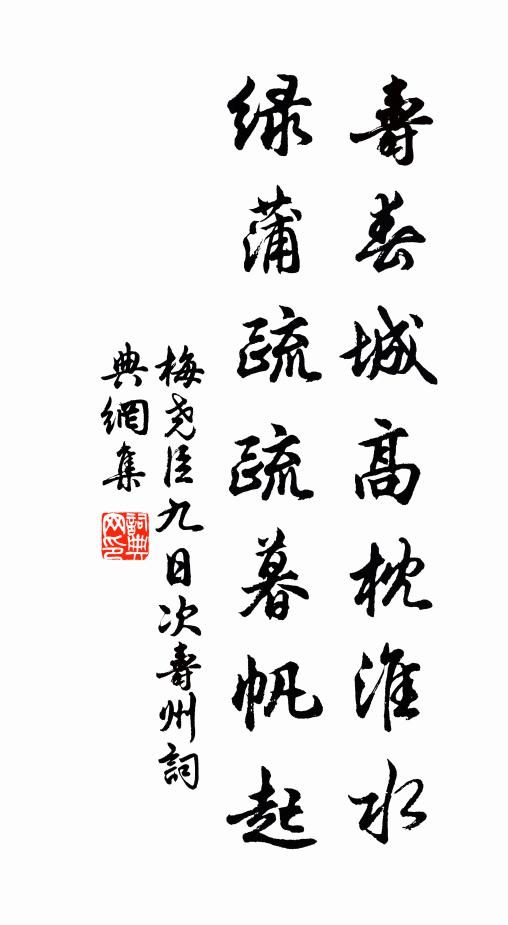 壽春城高枕淮水
绿蒲疏疏暮帆起
梅尧臣九日次壽州詞
典網集
詞典网印